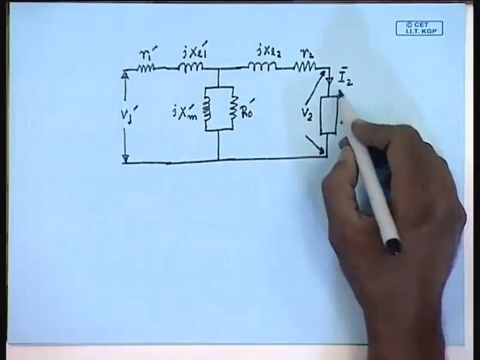 © CET
I.I.T. KGP
r₁′ jxₑ₁′ jxₑ₂ r₂
Ī₂
V₁′ jX′m R₀′ V₂